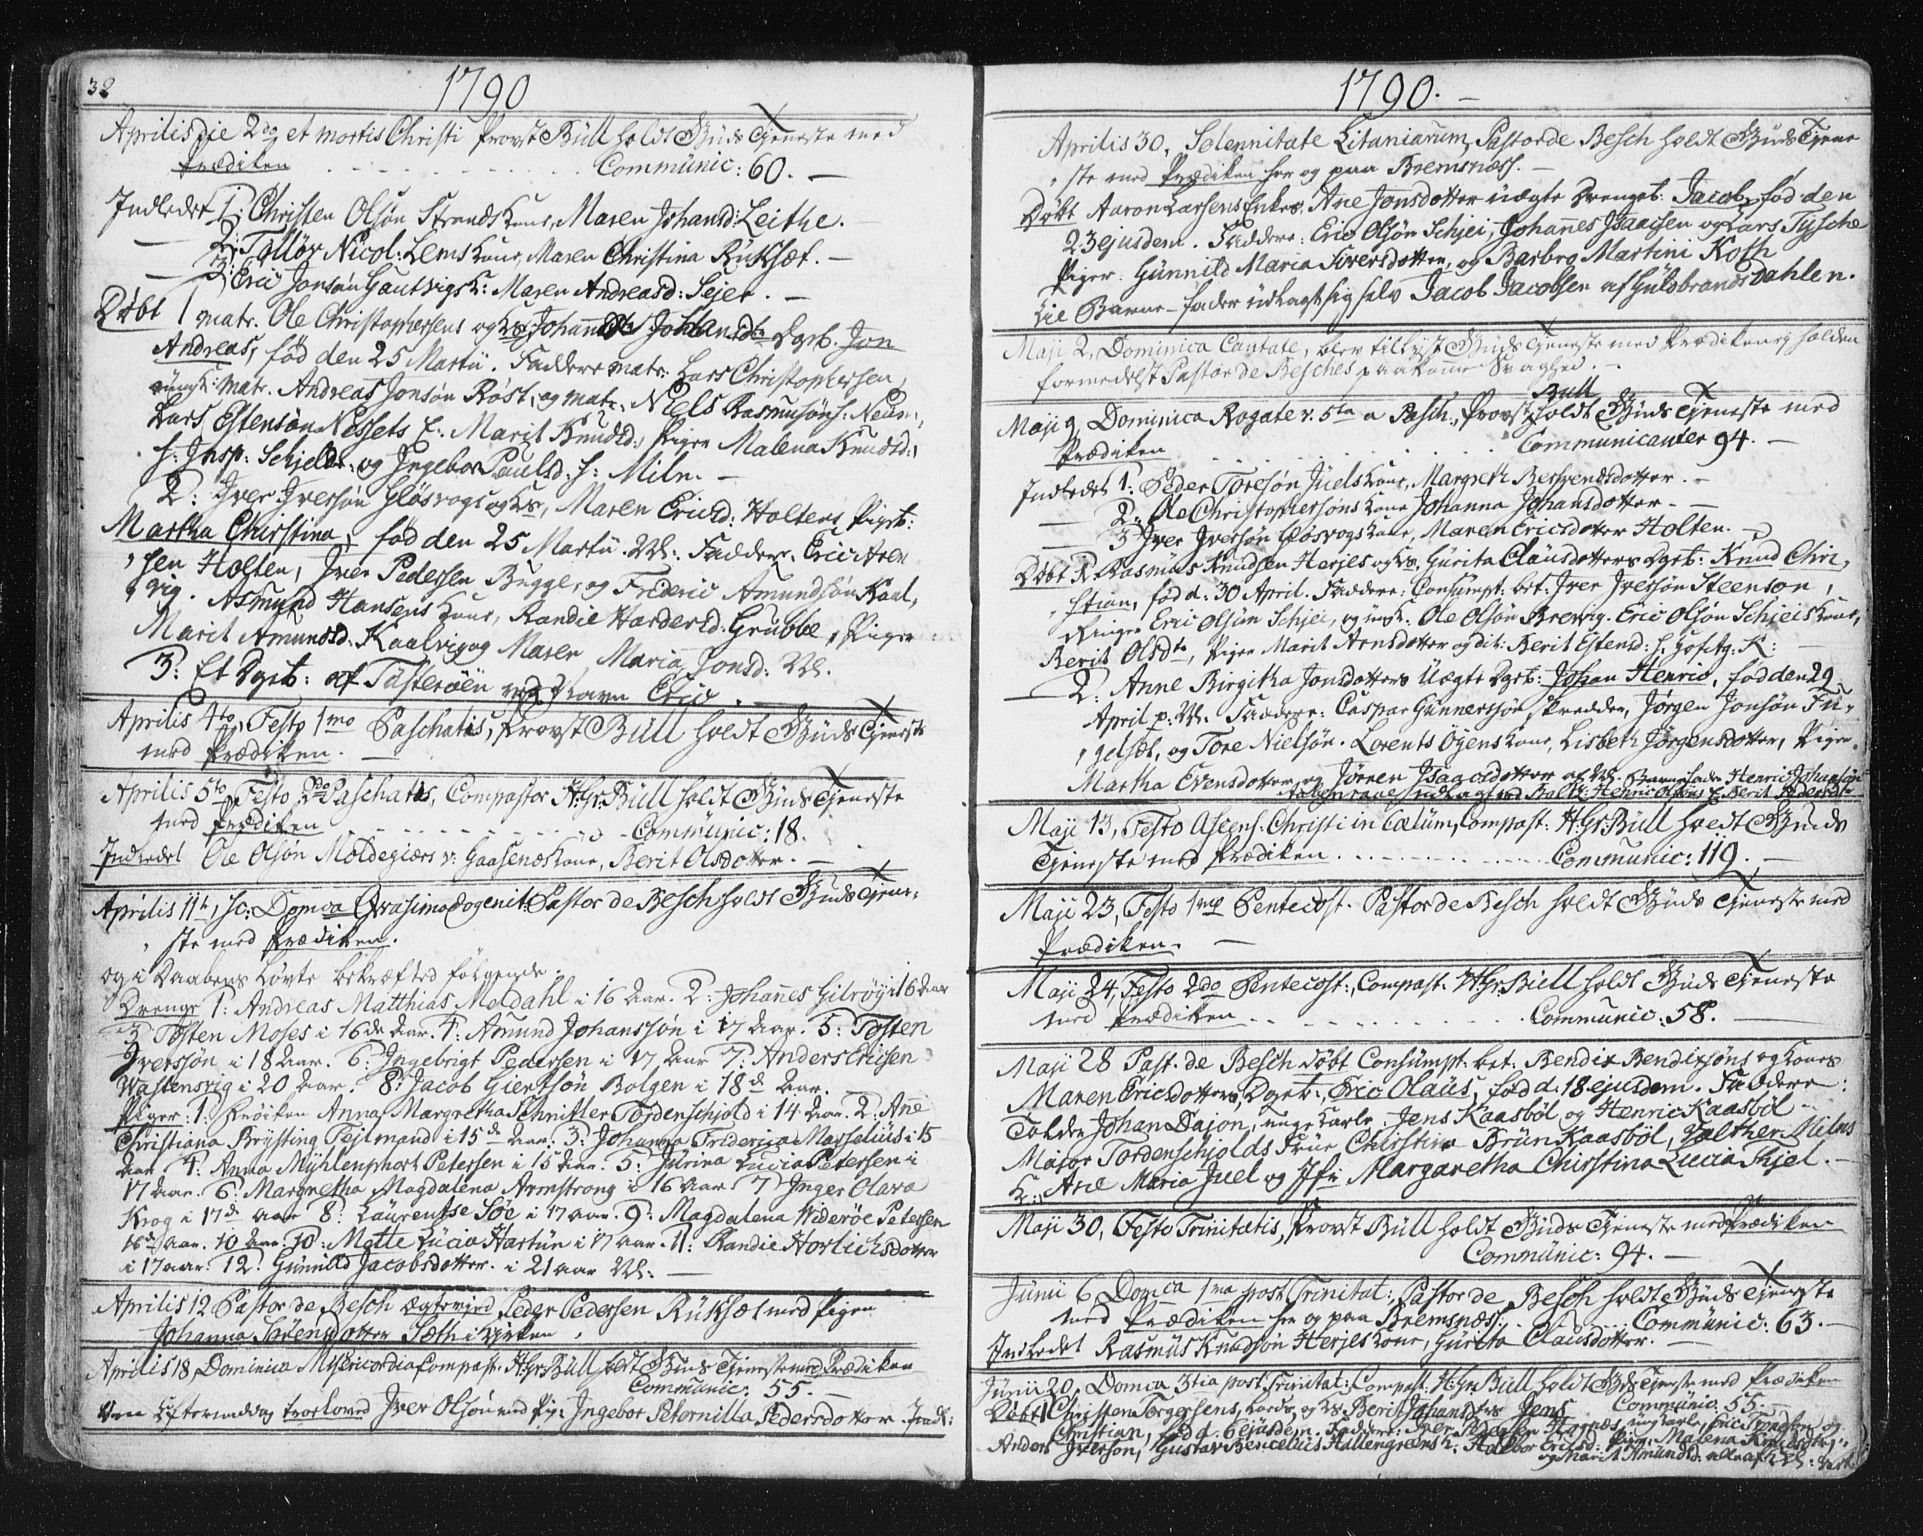 32
1790
Aprilis die 2do et mortis Christi Provst Büll holdt Guds Tjeneste med
Prædiken . . . Communic: 60. —
Indledet 1: Christen Olsøn Strands Kone, Maren Johansd: Leithe.
— 2: Tollør Nicol: Lems Kone, Maren Christina Rüksæt. —
— 3: Eric Jonsøn Gautvigs K: Maren Andreasd: Sejer. —
Døbt 1 matr. Ole Christophersens og Ks Johanna Johansdtr Dgeb. Jon
Andreas, fød den 25 Martii. Faddere matr: Lars Christophersen,
ungk: matr. Andreas Jonsøn Røst, og matr. Niels Rasmusøns: Neum,
Lars Estensøn Nessets E: Marit Knudsd:, Piger Malena Knudsd:
h: Insp: Schjelde og Ingebor Paulsd: h: Miln. —
2: Iver Iversøn Gløsvogs og Ks, Maren Ericsd: Holtens Pigeb:
Martha Christina, fød den 25 Martii. Vl: Faddere. Eric Iver
sen Holten, Iver Pedersen Bugge, og Frideric Amundsøn Kaal,
vig. Asmund Hansens Kone, Randie Hardersd. Grubbe, Piger
Marit Amundsd. Kaalvig og Maren Maria Jonsd: Vl.
3: Et Dgeb: af Tüsterøen ved Navn Eric.
Aprilis 4to, Festo 1mo Paschatis, Provst Büll holdt Guds Tjeneste
med Prædiken. —
Aprilis 5to Festo 2do Paschatis, Compastor H:Gr:Büll holdt Guds Tjeneste
med Prædiken . . . Communic: 18.
Indledet Ole Olsøn Moldegiærs v: Gaasenæs Kone, Berit Olsdotter. —
Aprilis 11te, sc: Domca Qvasimodogenit: Pastor de Besch holdt Guds Tjene,
ste med Prædiken.
og i Daabens Løvte bekræfted følgende:
Drenge 1: Andreas Matthias Meldahl i 16 Aar. 2: Johannes Gilrøy i 16 Aar
3 Tosten Moses i 16de Aar. 4: Amund Johanssøn i 17 Aar. 5: Tosten
Iverssøn i 18 Aar. 6: Ingebrigt Pedersen i 17 Aar 7: Anders Ericsen
Wastensvig i 20 Aar. 8: Jacob Giertsøn Bolgen i 18de Aar.
Piger: 1: Frøiken Anna Margretha Schnitler Tordenschjold i 14 Aar. 2: Ane
Christiana Brysting Fejlmand i 15de Aar. 3: Johanna Friderica Marselius i 15
Aar 4: Anna Mühlenphort Petersen i 15 Aar. 5: Jurina Lucia Petersen i
17 Aar. 6: Margretha Magdalena Armstrong i 16 Aar 7: Inger Olava
Krog i 17de aar 8: Laurentse Søe i 17 aar. 9: Magdalena Widerøe Petersen
16de Aar. 10: Mette Lucia Hartün i 17 Aar. 11: Randie Hortichsdotter
i 17 aar. 12. Gunnild Jacobsdotter. i 21 aar Vl: —
Aprilis 12 Pastor de Besch Ægteviede Peder Pedersen Rüksæt med Pigen
Johanna Sørensdotter Sæth i Kirken.
Aprilis 18, Dominica Misericordia Compast. H:Gr:Büll holdt Guds Tjeneste med Prædiken
Communic: 55. —
Om Eftermiddag troeloved Iver Olsøn med Pig: Ingebor Petornilla Pedersdotter. Indl:
1790. —
Aprilis 30, Solennitate Litaniarum, Pastor de Besch holdt Guds Tjene
ste med Prædiken her og paa Bremsnæs. —
Døbt Aaron Larsens Enkes Ane Jonsdotter uægte Drengeb: Jacob, fød den
23 ejusdem. Faddere: Eric Olsøn Schjei, Johannes Isaacsen og Lars Tysche
Piger: Günnild Maria Siversdotter, og Barbro Martini Koth
Til Barne-fader udlagt sig selv Jacob Jacobsen af Guldbrandsdahlen.
Maji 2, Dominica Cantate, blev tillyst Guds Tjeneste med Prædiken ej holden
formedelst Pastor de Besches paakomne Svaghed. —
Maji 9, Dominica Rogate v. 5ta a Pasch:, Provst Büll holdt Guds Tjeneste med
Prædiken . . . Communicanter 94. —
Indledet 1: Peder Toresøn Juels Kone, Margreth Bersvendsdotter. —
— 2. Ole Christophersøns Kone Johanna Johansdotter. —
— 3 Iver Iversøn Gløsvogs Kone, Maren Ericsdotter Holten. —
Døbt 1: Rasmus Knudsen Herjes og Ks. Gurita Clausdotters Dgeb: Knud Chri,
stian, fød d: 30 April. Faddere: Consumpt: bet: Iver Iverssøn Steenson,
Ringer Eric Olsøn Schjei, og ungk: Ole Olsøn Brevig. Eric Olsøn Schjeis Kone,
Berit Olsdtr, Piger Marit Arnsdotter og dit: Berit Estensd:
2: Anne Birgitha Jonsdotters Uægte Dgeb: Johan Henric, fød den 29
April p: Vl. Faddere: Caspar Gunnerssøn, skrædder, Jørgen Jonsøn Fu,
gelsæt, og Tore Nielsøn. Lorents Øyens Kone, Lisbeth Jørgensdotter, Piger
Martha Evensdotter og Jørren Isaacsdotter af Vl. Barnefader Henric Johansøn
Maji 13, Festo Ascens: Christi in Cælum, Compast: H:Gr:Büll holdt Guds
Tjeneste med Prædiken . . . Communic: 119. —
Maji 23, Festo 1mo Pentecost. Pastor de Besch holdt Guds Tjeneste med
Prædiken. —
Maji 24, Festo 2do Pentecost:, Compast. H:Gr:Büll holdt Guds Tjeneste
med Prædiken . . . Communic: 58. —
Maji 28 Past: de Besch døbt Consumpt: bet: Bendix Bendixsøns og Kones
Maren Ericsdotters Dgeb: Eric Olaus, fød d. 18 ejusdem. Faddere:
Tolder Johan Dajon, unge Karle: Jens Kaasbøl og Henric Kaasbøl
Major Tordenschjolds Frue Christina Brün Kaasbøl, Walther Milns
K:, Ane Maria Juel og Jfr Margaretha Christina Lucia Thjel. —
Maji 30, Festo Trinitatis, Provst Büll holdt Guds Tjeneste med Prædiken
Communic: 94. —
Junii 6 Domca 1ma post Trinitat: Pastor de Besch holdt Guds Tjeneste
med Prædiken her og paa Bremsnæs. . . . Communic: 63. —
Indledet Rasmus Knudsøn Herjes Kone, Gurita Clausdotter. —
Junii 20, Domca 3tia post Trinitat: Compast. H:Gr:Büll holdt Gds Tjeneste med Prædiken
Communic: 55. —
Døbt 1 Christen Torgersens, Lords, og Ks Berit Johansdtrs Jens
Christian, fød d. 6 ejusdem. Faddere: Iver Pedersen Hagenæs, ungkarle, Eric Trondsen og
Anders Iversøn, Gustav Bencelius Hallengreens K: Halbor Ericsd: Piger: Malena Knudsdtr
og Marit Amundsd: alle af Vl: